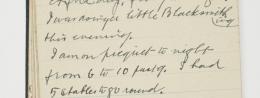 I was doing a little Blacksmithing
this evening.
I am on picquet to night
from 6 to 10 past 9. I had
5 stables to go round.